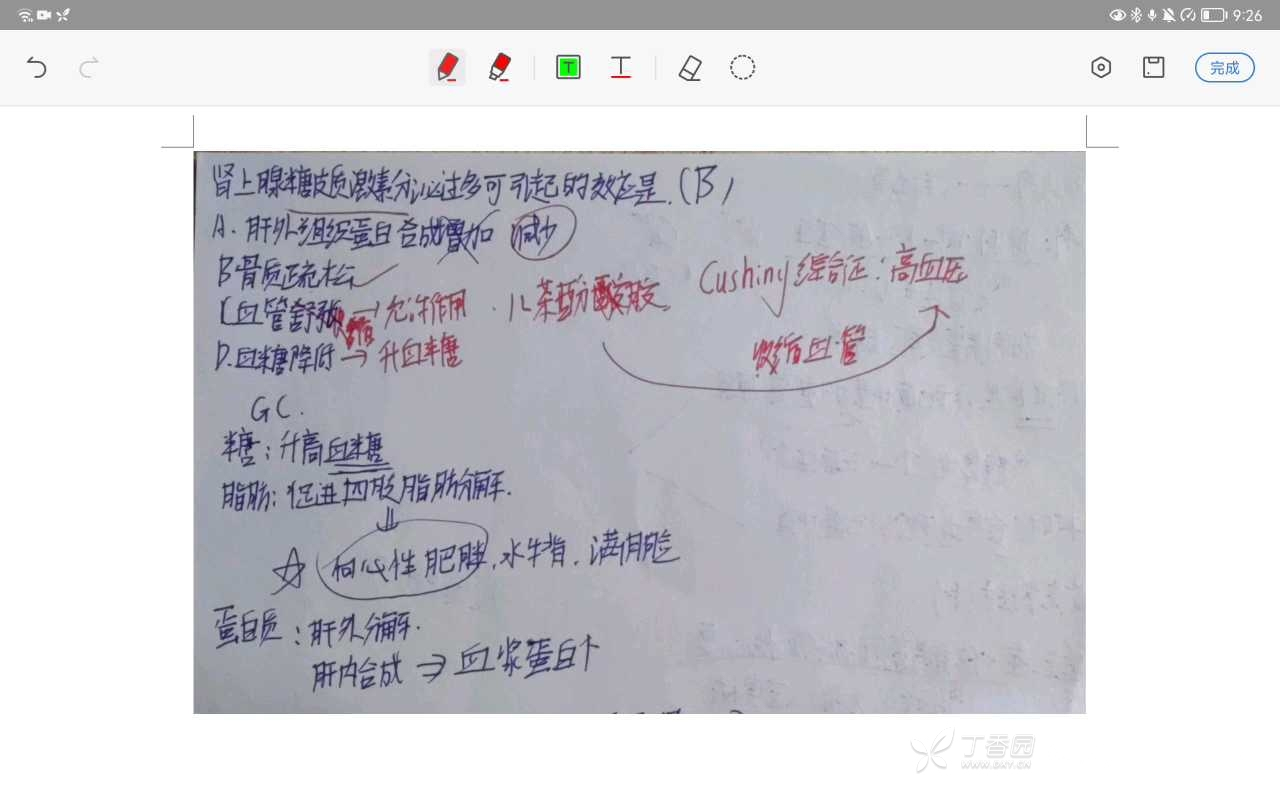 9:26
完成
肾上腺糖皮质激素分泌过多可引起的效应是.(B)
A.肝外组织蛋白合成增加 减少
B骨质疏松
C血管舒张→允许作用 · 儿茶酚胺
收缩
Cushing综合征:高血压
收缩血管
D.血糖降低→升血糖
GC.
糖:升高血糖
脂肪:促进四肢脂肪分解.
⇓
☆(向心性肥胖,水牛背.满月脸
蛋白质:肝外分解.
肝内合成⇒血浆蛋白↑
丁香园
WWW.DXY.CN